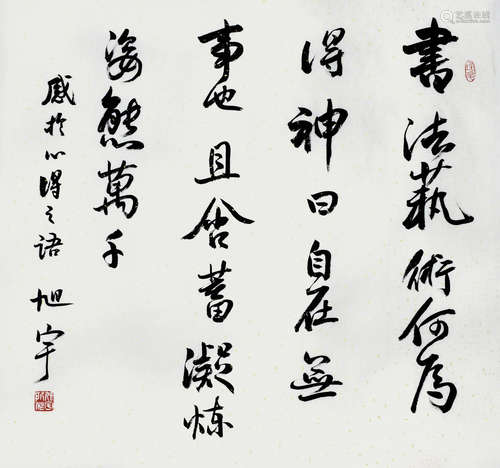 書法藝術何為
得神曰自在無
事也且含蓄凝煉
姿態萬千
感於心得之語 旭宇
艺狐在线